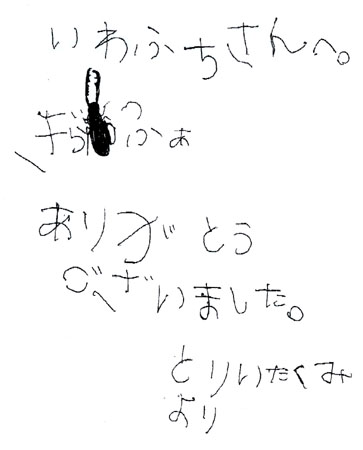 いわふちさんへ。
ぎらふぁ
ありがとう
ございました。
とりいたくみ
より